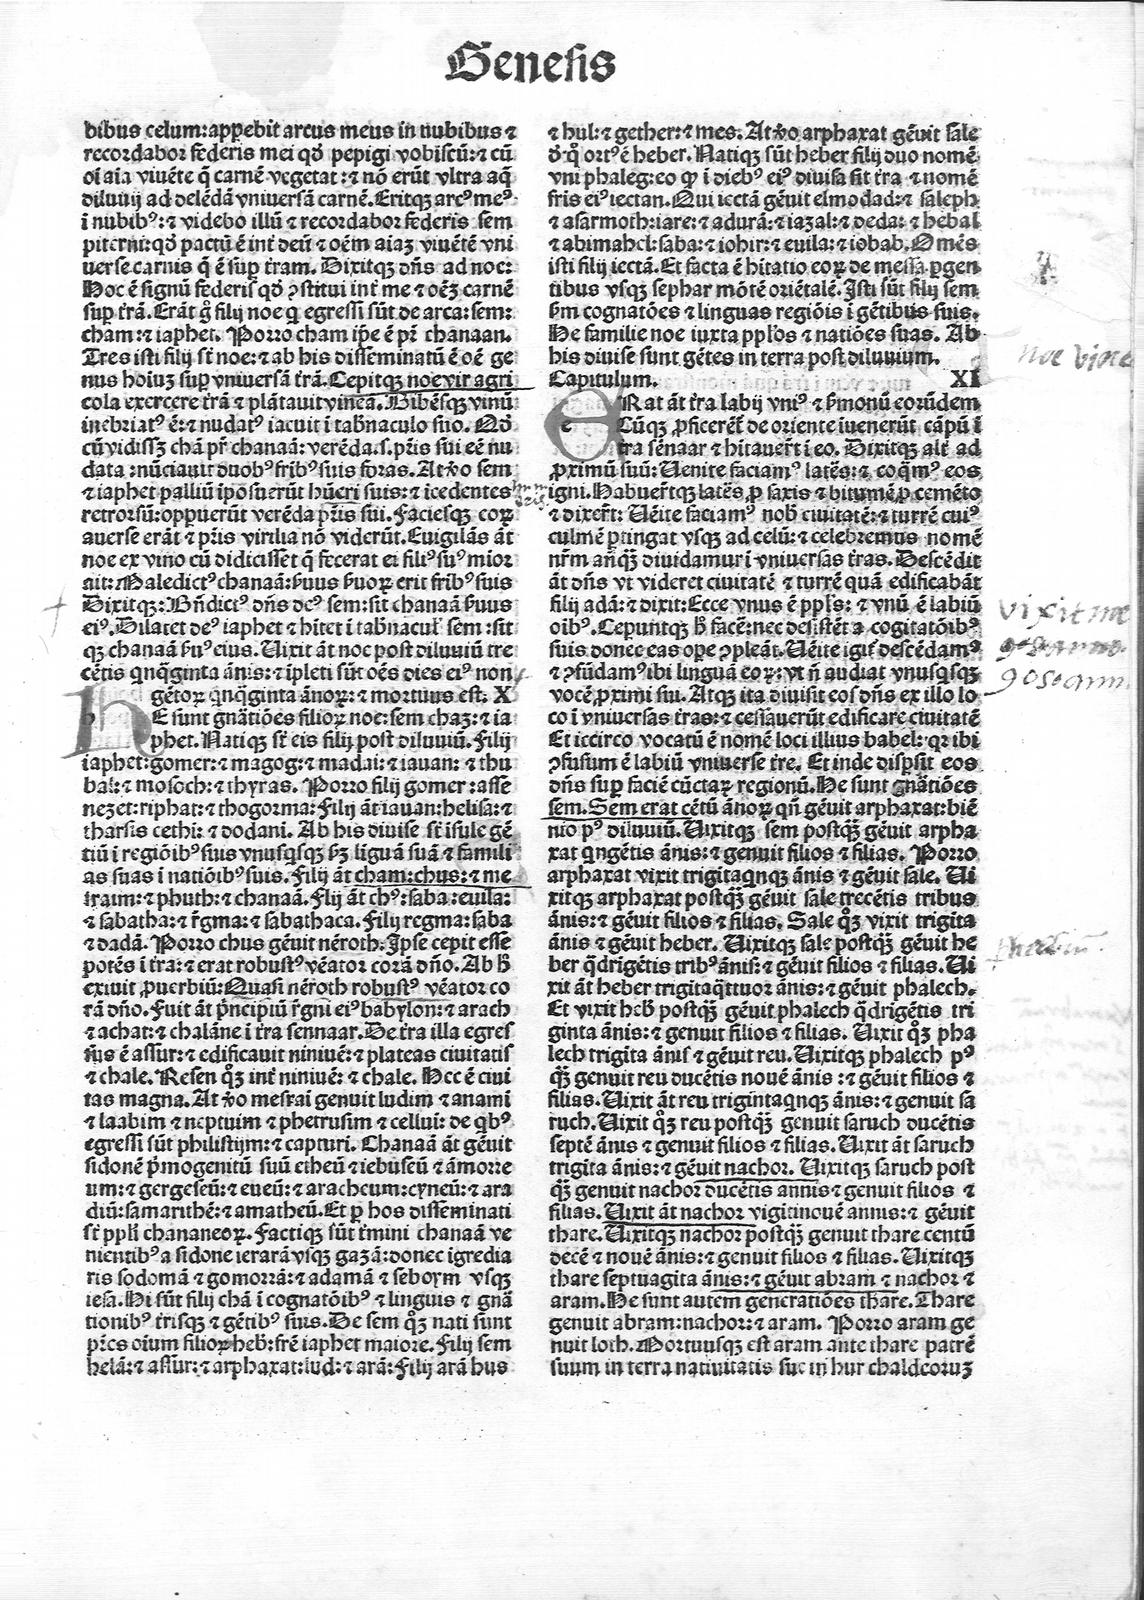 Genesis
dibus celum: appebit arcus meus in nubibus ⁊
recordabor federis mei qđ pepigi vobiscū: ⁊ cū
oī aīa vivēte q̄ carnē vegetat: ⁊ nō erūt vltra aq̄
diluuij ad delēdā vniuersā carnē. Eritqꝫ arcꝰ meꝰ
i nubibꝰ: ⁊ videbo illū ⁊ recordabor federis sem
piterni: qđ pactū ē int̄ deū ⁊ oēm aīaꝫ viuētē vni
uerse carnis q̄ ē suꝑ t̄ram. Dixitqꝫ dn̄s ad noe:
Hoc ē signū federis qđ ꝯstitui int̄ me ⁊ oēꝫ carnē
suꝑ t̄rā. Erāt g̊ filij noe q̄ egressi sūt de arca: sem:
cham: ⁊ iaphet. Porro cham ip̄e ē pr̄ chanaan.
Tres isti filij st̄ noe: ⁊ ab his disseminatū ē oē ge
nus hoīuꝫ suꝑ vniuersā t̄rā. Cepitqꝫ noe vir agri
cola exercere t̄rā ⁊ plātauit vineā. Bibēsqꝫ vinū
inebriatꝰ ē: ⁊ nudatꝰ iacuit i tab̄naculo suo. Qđ
cū vidissꝫ chā pr̄ chanaā: verēda .s. pr̄is sui eē nu
data: nūciauit duobꝰ fr̄ibꝰ suis foras. At ꝟo sem
⁊ iaphet palliū iposuerūt hūeri suis: ⁊ icedentes
retrorsū: oꝑuerūt verēda pr̄is sui. Faciesqꝫ eoꝝ
auerse erāt ⁊ pr̄is virilia nō viderūt. Euigilās āt
noe ex vino cū didicisset q̄ fecerat ei filiꝰ suꝰ mīor
ait: Maledictꝰ chanaā: ẜuus ẜuoꝝ erit fr̄ibꝰ suis
Dixitqꝫ: Bn̄dictꝰ dn̄s deꝰ sem: sit chanaā ẜuus
eiꝰ. Dilatet deꝰ iaphet ⁊ hītet i tab̄nacul' sem: sit
qꝫ chanaā ẜuꝰ eius. Uixit āt noe post diluuiū tre
cētis qnq̄ginta ānis: ⁊ ipleti sūt oēs dies eiꝰ non
gētoꝝ qnq̄ginta ānoꝝ: ⁊ mortuus est. X
HE sunt gn̄atiōes filioꝝ noe: sem chaꝫ: ⁊ ia
phet. Natiqꝫ st̄ eis filij post diluuiū. Filij
iaphet: gomer: ⁊ magog: ⁊ madai: ⁊ iauan: ⁊ thu
bal: ⁊ mosoch: ⁊ thyras. Porro filij gomer: asse
nezet: riphat: ⁊ thogorma: Filij āt iauan: helisa: ⁊
tharsis cethi: ⁊ dodani. Ab his diuise st̄ isule gē
tiū i regiōibꝰ suis vnusqsqꝫ ẜꝫ liguā suā ⁊ famili
as suas i natiōibꝰ suis. Filij āt cham: chus: ⁊ me
sraim: ⁊ phuth: ⁊ chanaā. Flij āt chꝰ: saba: euila:
⁊ sabatha: ⁊ r̄gma: ⁊ sabathaca. Filij regma: saba
⁊ dadā. Porro chus gēuit nēroth. Ipse cepit esse
potēs i t̄ra: ⁊ erat robustꝰ vēator corā dn̄o. Ab h̄
exiuit ꝓuerbiū: Quasi nēroth robustꝰ vēator co
rā dn̄o. Fuit āt pr̄ncipiū r̄gni eiꝰ babylon: ⁊ arach
⁊ achat: ⁊ chalāne i t̄ra sennaar. De t̄ra illa egres
sus ē assur: ⁊ edificauit niniuē: ⁊ plateas ciuitatis
⁊ chale. Resen qꝫ int̄ niniuē: ⁊ chale. Hec ē ciui
tas magna. At ꝟo mesrai genuit ludim ⁊ anami
⁊ laabim ⁊ neptuim ⁊ phetrusim ⁊ cellui: de qbꝰ
egressi sūt philistijm: ⁊ capturi. Chanaā āt gēuit
sidonē p̄mogenitū suū etheū ⁊ iebuseū ⁊ āmorre
um: ⁊ gergeseū: ⁊ eueū: ⁊ aracheum: cyneū: ⁊ ara
diū: samarithē: ⁊ amatheū. Et ꝑ hos disseminati
st̄ ppl̄i chananeoꝝ. Factiqꝫ sūt t̄mini chanaā ve
nientibꝰ a sidone ierarā vsqꝫ gazā: donec igredia
ris sodomā ⁊ gomorrā: ⁊ adamā ⁊ seboym vsqꝫ
iesa. Hi sūt filij chā i cognatōibꝰ ⁊ linguis ⁊ gn̄a
tionibꝰ t̄risqꝫ ⁊ gētibꝰ suis. De sem qꝫ nati sunt
pr̄es oīum filioꝝ heb̄: fr̄e iaphet maiore. Filij sem
helā: ⁊ assur: ⁊ arphaxat: lud: ⁊ arā: Filij arā hus
⁊ hul: ⁊ gether: ⁊ mes. At ꝟo arphaxat gēuit sale
đ q̊ ortꝰ ē heber. Natiqꝫ sūt heber filij duo nomē
vni phaleg: eo ꝙ i diebꝰ eiꝰ diuisa sit t̄ra ⁊ nomē
fr̄is eiꝰ iectan. Qui iectā gēuit elmodad: ⁊ saleph
⁊ asarmoth: iare: ⁊ adurā: ⁊ iazal: ⁊ decla: ⁊ hebal
⁊ abimahel: saba: ⁊ iohir: ⁊ euila: ⁊ iobab. Omēs
isti filij iectā. Et facta ē hītatio eoꝝ de messa ꝑgen
tibus vsqꝫ sephar mōtē oriētalē. Isti sūt filij sem
ẜm cognatōes ⁊ linguas regiōis i gētibus suis.
He familie noe iuxta ppl̄os ⁊ natiōes suas. Ab
his diuise sunt gētes in terra post diluuium.
Capitulum. XI
ERat āt t̄ra labij vniꝰ ⁊ ẜmonū eorūdem
Cūqꝫ ꝓficerēt de oriente iuenerūt cāpū i
t̄ra sēnaar ⁊ hītauer̄t i eo. Dixitqꝫ alt̄ ad
ꝓximū suū: Uenite faciamꝰ latēs: ⁊ coq̄mꝰ eos
igni. Habuer̄tqꝫ latēs ꝓ saxis ⁊ bitumē ꝓ cemēto
⁊ dixer̄t: Uēite faciamꝰ nob̄ ciuitatē: ⁊ turrē cuiꝰ
culmē ꝑtingat vsqꝫ ad celū: ⁊ celebremus nomē
nr̄m añq̄ꝫ diuidamur i vniuersas t̄ras. Descēdit
āt dn̄s vt videret ciuitatē ⁊ turrē quā edificabāt
filij adā: ⁊ dixit: Ecce vnus ē ppl̄s: ⁊ vnū ē labiū
oībꝰ. Cepuntqꝫ h̄ facē: nec desistēt a cogitatōibꝰ
suis donec eas oꝑe ꝯpleāt. Uēite igit̄ descēdamꝰ
⁊ ꝯfūdamꝰ ibi linguā eoꝝ: vt ñ audiat vnusqsqꝫ
vocē ꝓximi sui. Atqꝫ ita diuisit eos dn̄s ex illo lo
co i vniuersas t̄ras: ⁊ cessauerūt edificare ciuitatē
Et iccirco vocatū ē nomē loci illius babel: qr ibi
ꝯfusum ē labiū vniuerse t̄re. Et inde disꝑsit eos
dn̄s suꝑ faciē cūctaꝝ regionū. He sunt gn̄atiōes
sem. Sem erat cētū ānoꝝ qn̄ gēuit arphaxat: biē
nio pꝰ diluuiū. Uixitqꝫ sem postq̄ꝫ gēuit arpha
xat qngētis ānis: ⁊ genuit filios ⁊ filias. Porro
arphaxat vixit trigitaqnqꝫ ānis ⁊ gēuit sale. Ui
xitqꝫ arphaxat postq̄ꝫ gēuit sale trecētis tribus
ānis: ⁊ gēuit filios ⁊ filias. Sale qꝫ vixit trigita
ānis ⁊ gēuit heber. Uixitqꝫ sale postq̄ꝫ gēuit he
ber q̄drigētis tribꝰ ānis: ⁊ gēuit filios ⁊ filias. Ui
xit āt heber trigitaq̄ttuor ānis: ⁊ gēuit phalech.
Et vixit heb̄ postq̄ꝫ gēuit phalech q̄drigētis tri
ginta ānis: ⁊ genuit filios ⁊ filias. Uixit qꝫ pha
lech trigita ānis ⁊ gēuit reu. Uixitqꝫ phalech pꝰ
q̄ꝫ genuit reu ducētis nouē ānis: ⁊ gēuit filios ⁊
filias. Uixit āt reu trigintaqnqꝫ ānis: ⁊ genuit sa
ruch. Uixit qꝫ reu postq̄ꝫ genuit saruch ducētis
septē ānis ⁊ genuit filios ⁊ filias. Uixit āt saruch
trigita ānis: ⁊ gēuit nachor. Uixitqꝫ saruch post
q̄ꝫ genuit nachor ducētis annis ⁊ genuit filios ⁊
filias. Uixit āt nachor vigitinouē annis: ⁊ gēuit
thare. Uixitqꝫ nachor postq̄ꝫ genuit thare centū
decē ⁊ nouē ānis: ⁊ genuit filios ⁊ filias. Uixitqꝫ
thare septuagita ānis: ⁊ gēuit abram ⁊ nachor ⁊
aram. He sunt autem generatiōes thare. Thare
genuit abram: nachor: ⁊ aram. Porro aram ge
nuit loth. Mortuusqꝫ est aram ante thare patrē
suum in terra natiuitatis sue in hur chaldeoruꝫ
noe vine
vixit noe
950 ann.